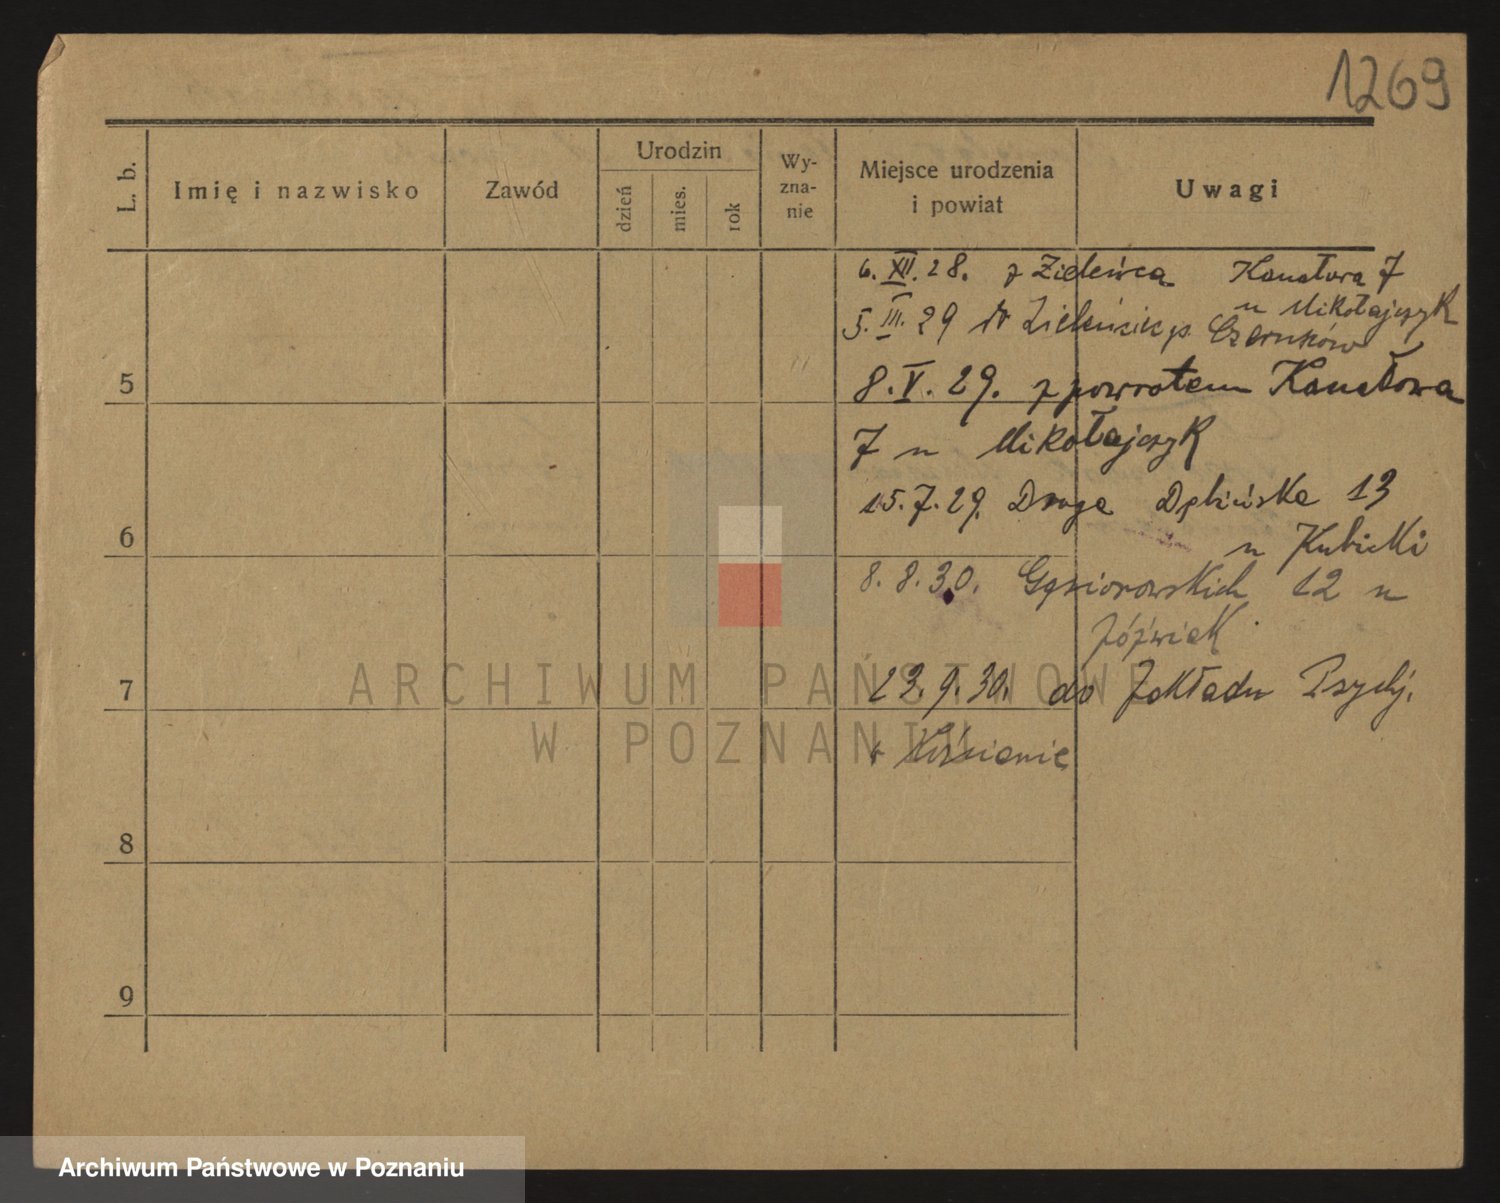 1269
L. b.
Imię i nazwisko
Zawód
Urodzin
dzień
mies.
rok
Wy-
zna-
nie
Miejsce urodzenia
i powiat
Uwagi
6. XII. 28. z Zieleńca Kanałowa 7
u Mikołajczyk
5. III. 29 do p. Czarnków
5
8. V. 29. z powrotem Kanałowa
7 u Mikołajczyk
15. 7. 29. Droga Dębińska 13
6
u Kubicki
8. 8. 30. Gąsiorowskich 12 u
Jóźwiak
7
23. 9. 30. do Zakładu Psychj.
w Kościanie
8
9
ARCHIWUM PAŃSTWOWE
W POZNANIU
Archiwum Państwowe w Poznaniu